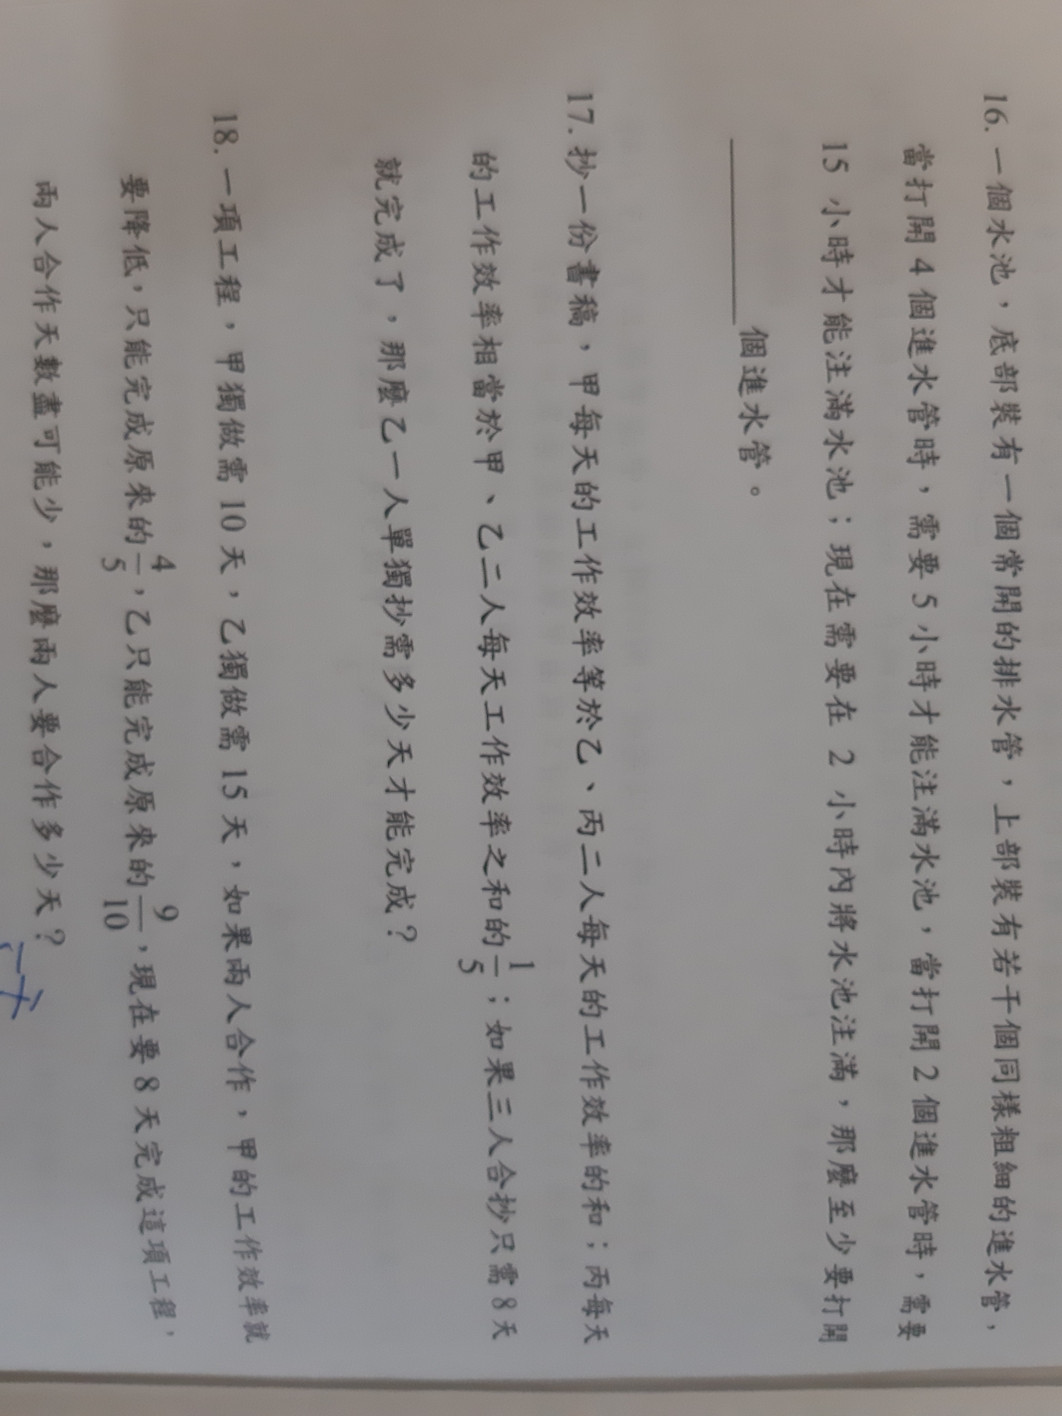 16. 一個水池，底部裝有一個常開的排水管，上部裝有若干個同樣粗細的進水管，
當打開 4 個進水管時，需要 5 小時才能注滿水池，當打開 2 個進水管時，需要
15 小時才能注滿水池；現在需要在 2 小時內將水池注滿，那麼至少要打開
______ 個進水管。
17. 抄一份書稿，甲每天的工作效率等於乙、丙二人每天的工作效率的和；丙每天
的工作效率相當於甲、乙二人每天工作效率之和的 1/5；如果三人合抄只需 8 天
就完成了，那麼乙一人單獨抄需多少天才能完成？
18. 一項工程，甲獨做需 10 天，乙獨做需 15 天，如果兩人合作，甲的工作效率就
要降低，只能完成原來的 4/5，乙只能完成原來的 9/10，現在要 8 天完成這項工程，
兩人合作天數盡可能少，那麼兩人要合作多少天？